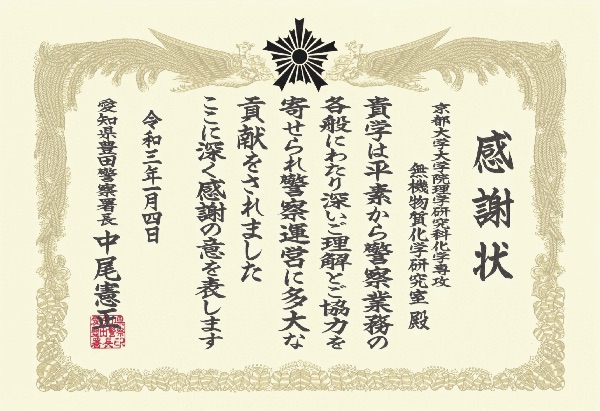 感謝状
京都大学大学院理学研究科化学専攻
無機物質化学研究室 殿
貴学は平素から警察業務の
各般にわたり深いご理解とご協力を
寄せられ警察運営に多大な
貢献をされました
ここに深く感謝の意を表します
令和三年一月四日
愛知県豊田警察署長 中尾憲正